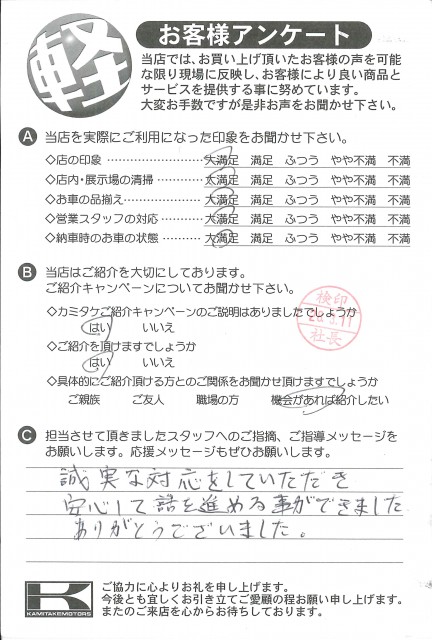 軽
お客様アンケート
当店では、お買い上げ頂いたお客様の声を可能
な限り現場に反映し、お客様により良い商品と
サービスを提供する事に努めています。
大変お手数ですが是非お声をお聞かせ下さい。
A 当店を実際にご利用になった印象をお聞かせ下さい。
◇店の印象 ……………… 大満足 満足 ふつう やや不満 不満
◇店内・展示場の清掃 ……… 大満足 満足 ふつう やや不満 不満
◇お車の品揃え …………… 大満足 満足 ふつう やや不満 不満
◇営業スタッフの対応 ……… 大満足 満足 ふつう やや不満 不満
◇納車時のお車の状態 ……… 大満足 満足 ふつう やや不満 不満
B 当店はご紹介を大切にしております。
ご紹介キャンペーンについてお聞かせ下さい。
◇カミタケご紹介キャンペーンのご説明はありましたでしょうか
はい いいえ
◇ご紹介を頂けますでしょうか
はい いいえ
◇具体的にご紹介頂ける方とのご関係をお聞かせ頂けますでしょうか
ご親族 ご友人 職場の方 機会があれば紹介したい
検印
社長
C 担当させて頂きましたスタッフへのご指摘、ご指導メッセージを
お願いします。応援メッセージもぜひお願いします。
誠実な対応をしていただき
安心して話を進める事ができました
ありがとうございました。
K
KAMITAKEMOTORS
ご協力に心よりお礼を申し上げます。
今後とも宜しくお引き立てご愛顧の程お願い申し上げます。
またのご来店を心からお待ちしております。